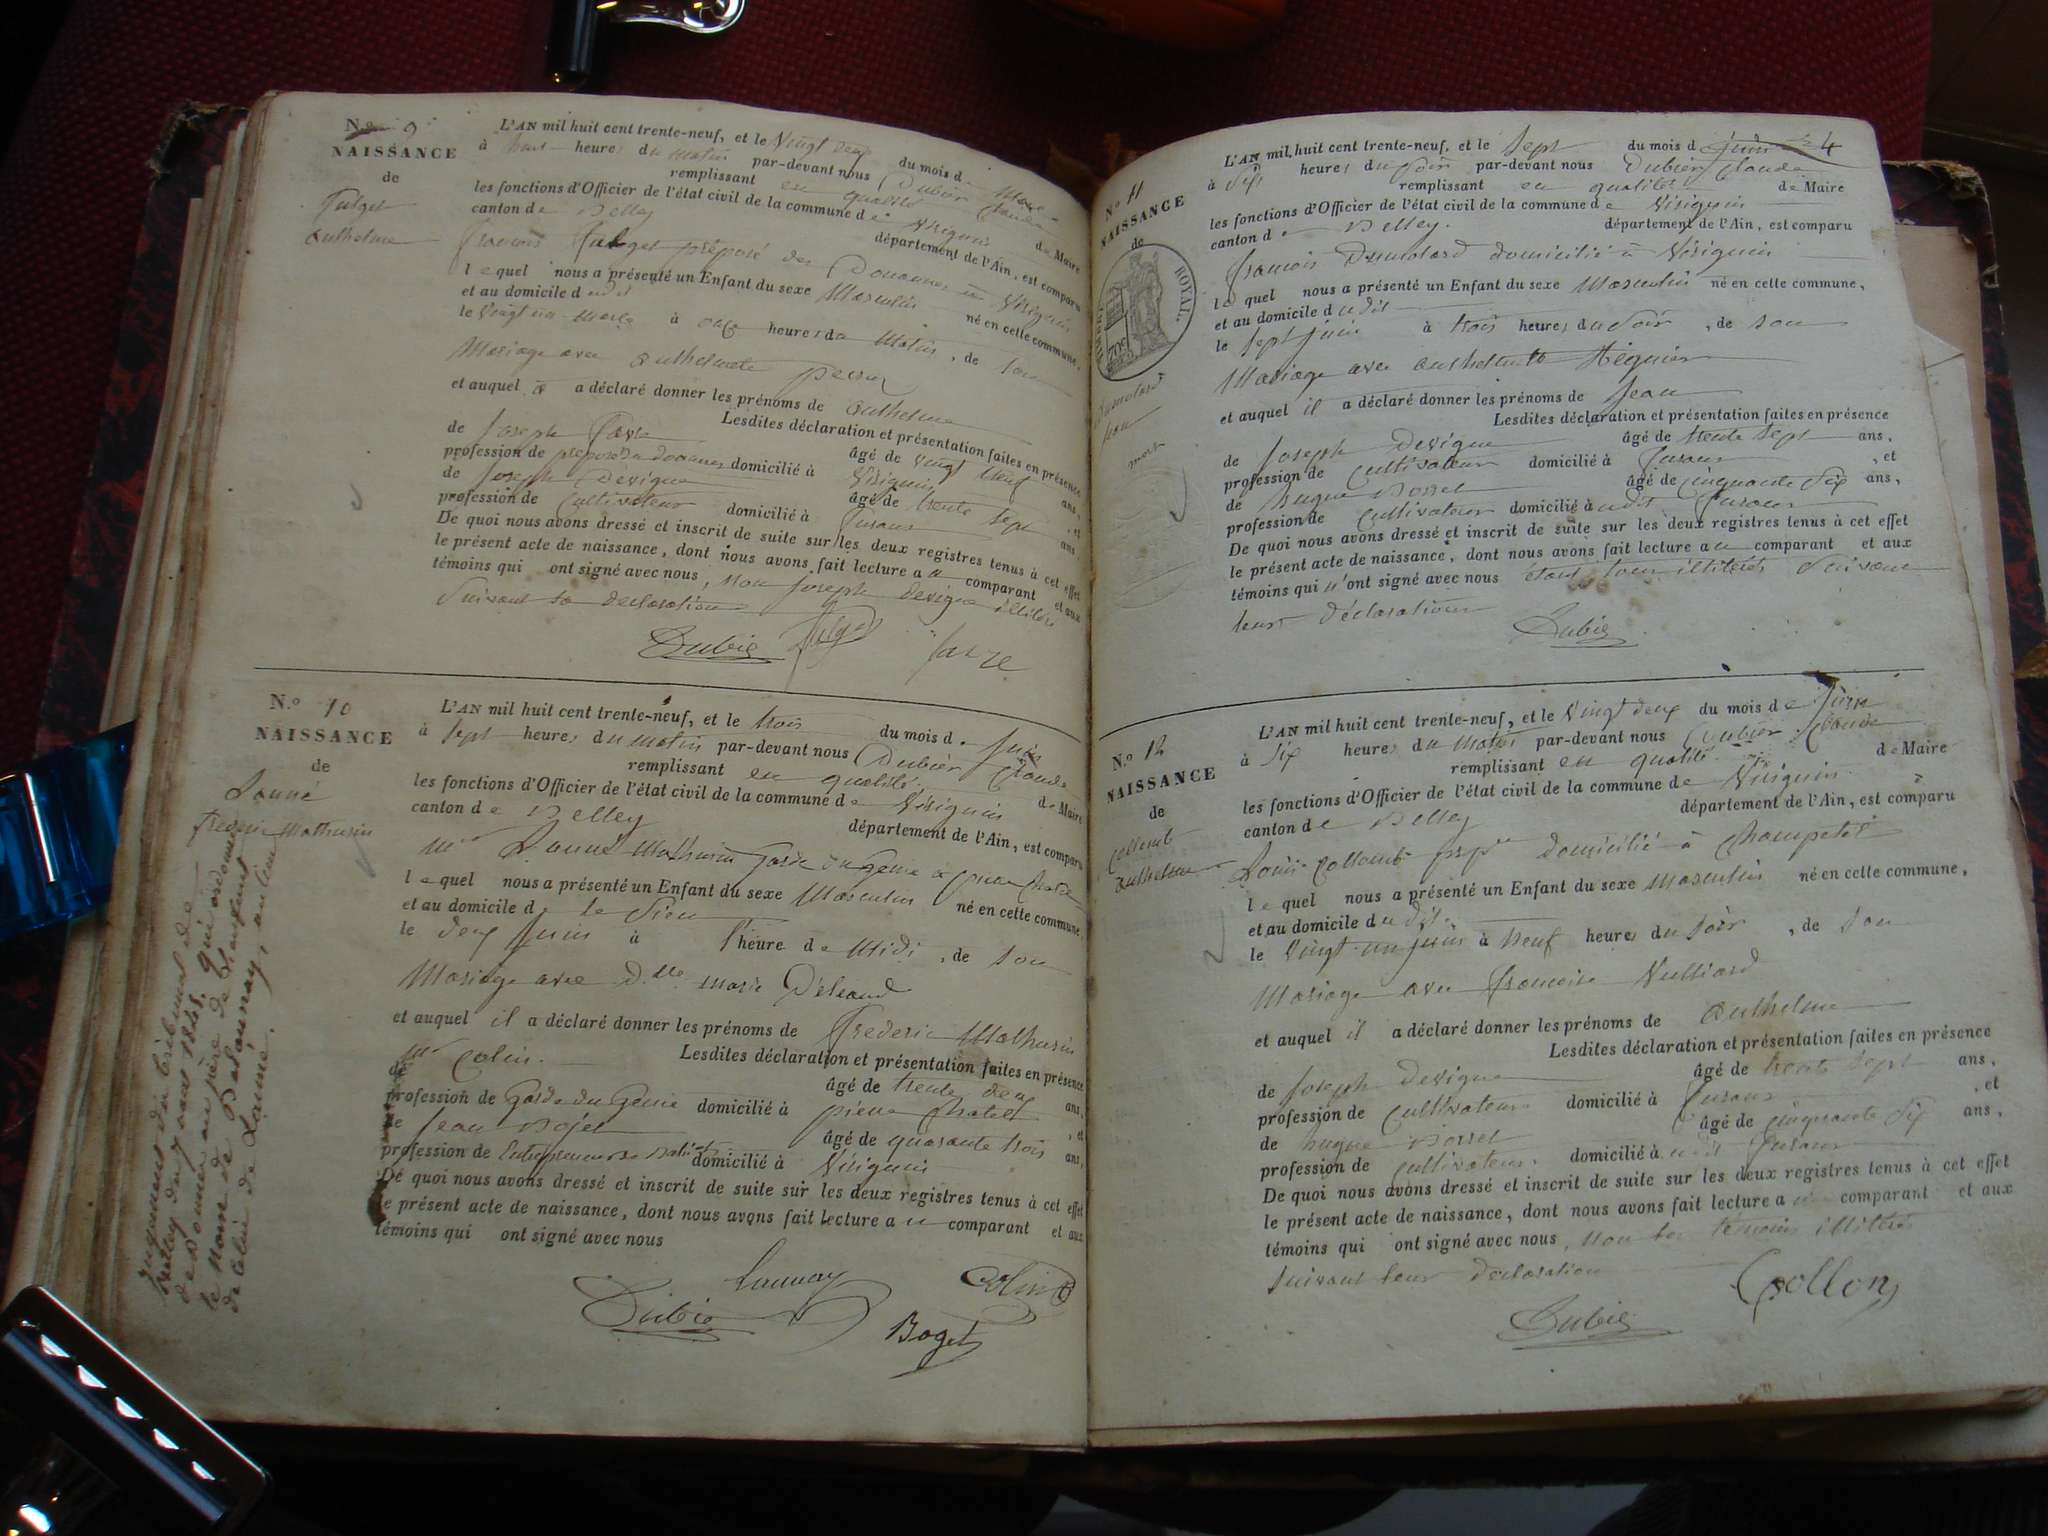 N.º 9
NAISSANCE
de
Anthelme
L'AN mil huit cent trente-neuf, et le Vingt deux du mois de
à heures du matin par-devant nous Dubier Claude
remplissant en qualité de Maire
les fonctions d'Officier de l'état civil de la commune de Virignin
canton de Belley département de l'Ain, est comparu
francois préposé des Douanes à Virignin
lequel nous a présenté un Enfant du sexe Masculin né en cette commune,
et au domicile dudit
le Vingt un à onze heures du Matin, de son
Mariage avec
et auquel a déclaré donner les prénoms de Anthelme
Lesdites déclaration et présentation faites en présence
de Joseph Favre âgé de vingt neuf ans,
profession de préposé des douanes domicilié à Virignin, et
de Joseph Devigne âgé de trente sept ans,
profession de Cultivateur domicilié à
De quoi nous avons dressé et inscrit de suite sur les deux registres tenus à cet effet
le présent acte de naissance, dont nous avons fait lecture au comparant et aux
témoins qui ont signé avec nous, non Joseph devigne illitéré
Suivant sa declaration
Dubier Favre
N.º 10
NAISSANCE
de
Launé
frederic Mathurin
Jugement du tribunal de
Belley du 1848, qui ordonne
de donner au père de l'enfant
le nom de Delaunay, au lieu
de celui de Launé.
L'AN mil huit cent trente-neuf, et le trois du mois de Juin
à Sept heures du matin par-devant nous Dubier Claude
remplissant en qualité de Maire
les fonctions d'Officier de l'état civil de la commune de Virignin
canton de Belley département de l'Ain, est comparu
Mr Launé Mathurin Garde du Génie à pierre Chatel
lequel nous a présenté un Enfant du sexe Masculin né en cette commune,
et au domicile de le Sien
le deux Juin à l'heure de Midi, de son
Mariage avec Dlle marie
et auquel il a déclaré donner les prénoms de frederic Mathurin
Lesdites déclaration et présentation faites en présence
de Mr Colin. âgé de trente deux ans,
profession de Garde du Genie domicilié à pierre Chatel, et
de Jean Bojet âgé de quarante trois ans,
profession de Entrepreneur de domicilié à Virignin
De quoi nous avons dressé et inscrit de suite sur les deux registres tenus à cet effet
le présent acte de naissance, dont nous avons fait lecture au comparant et aux
témoins qui ont signé avec nous
Launay Colin
Dubier Boget
4
N.º 11
NAISSANCE
de
TIMBRE ROYAL.
70c
Dumolard
Jean
mort
L'AN mil huit cent trente-neuf, et le Sept du mois de Juin
à Sept heures du Soir par-devant nous Dubier Claude
remplissant en qualité de Maire
les fonctions d'Officier de l'état civil de la commune de Virignin
canton de Belley. département de l'Ain, est comparu
francois Dumolard domicilié à Virignin
lequel nous a présenté un Enfant du sexe Masculin né en cette commune,
et au domicile dudit
le Sept juin à trois heures du Soir, de son
Mariage avec
et auquel il a déclaré donner les prénoms de Jean
Lesdites déclaration et présentation faites en présence
de Joseph Devigne âgé de trente sept ans,
profession de Cultivateur domicilié à, et
de hugue Borset âgé de cinquante Six ans,
profession de Cultivateur domicilié audit
De quoi nous avons dressé et inscrit de suite sur les deux registres tenus à cet effet
le présent acte de naissance, dont nous avons fait lecture au comparant et aux
témoins qui n'ont signé avec nous étant tous illitérés Suivant
leur déclaration
Dubier
N.º 12
NAISSANCE
de
Collomb
Anthelme
L'AN mil huit cent trente-neuf, et le Vingt deux du mois de Juin
à Six heures du Matin par-devant nous Dubier Claude
remplissant en qualité de Maire
les fonctions d'Officier de l'état civil de la commune de Virignin.
canton de Belley département de l'Ain, est comparu
Louis Collomb domicilié à
lequel nous a présenté un Enfant du sexe Masculin né en cette commune,
et au domicile dudit
le Vingt-un juin à neuf heures du Soir, de son
Mariage avec francoise Vulliard
et auquel il a déclaré donner les prénoms de Anthelme
Lesdites déclaration et présentation faites en présence
de Joseph Devigne âgé de trente sept ans,
profession de Cultivateur domicilié à, et
de hugue Borset âgé de cinquante Six ans,
profession de cultivateur. domicilié audit
De quoi nous avons dressé et inscrit de suite sur les deux registres tenus à cet effet
le présent acte de naissance, dont nous avons fait lecture au comparant et aux
témoins qui ont signé avec nous, non les temoins illitérés
Suivant leur declaration
Dubier Collon